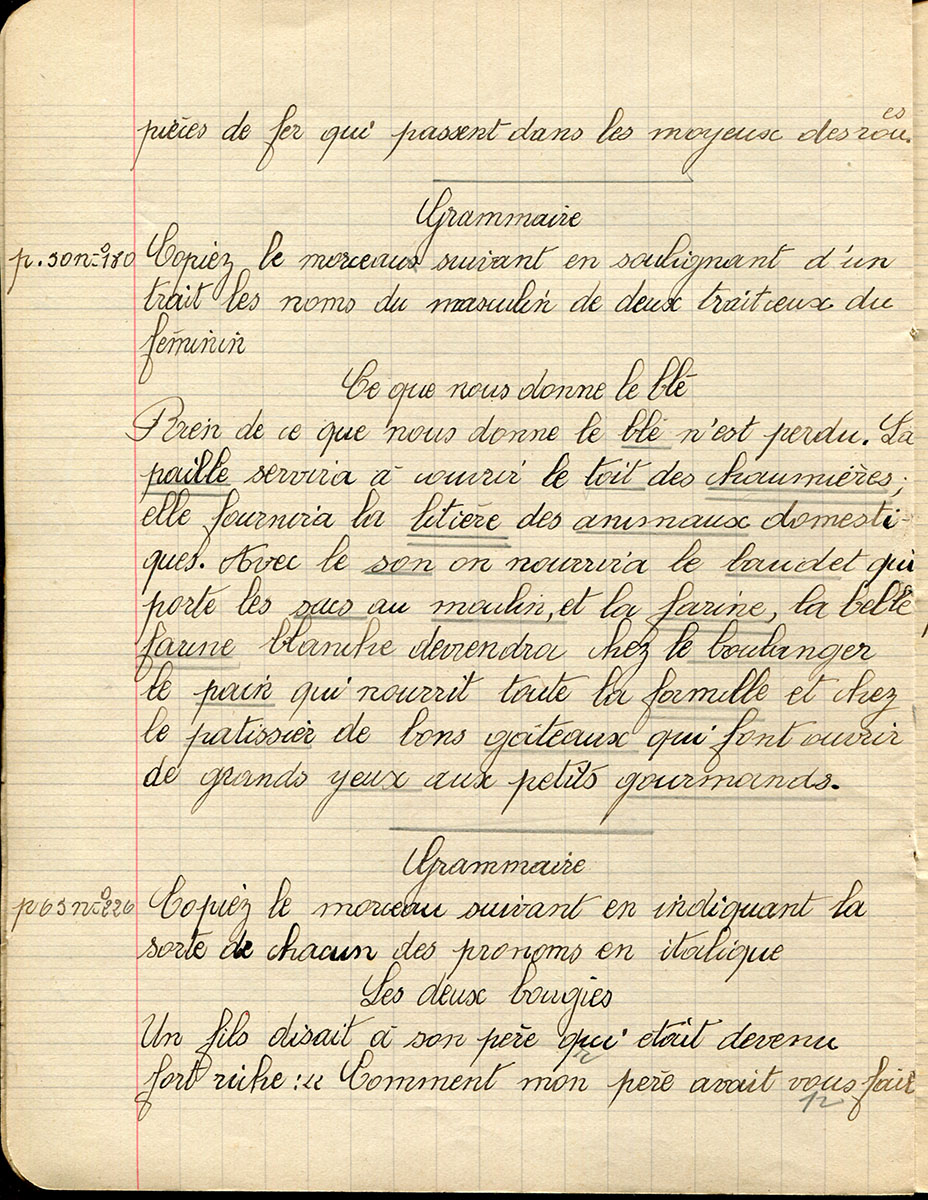 pièces de fer qui passent dans les moyeux des roues
Grammaire
p. 50 nº 180 Copiez le morceau suivant en soulignant d'un
trait les noms du masculin de deux trait ceux du
féminin
Ce que nous donne le blé
Rien de ce que nous donne le blé n'est perdu. La
paille servira à couvrir le toit des chaumières;
elle fournira la litière des animaux domesti-
ques. Avec le son on nourrira le baudet qui
porte les sacs au moulin, et la farine, la belle
farine blanche deviendra chez le boulanger
le pain qui nourrit toute la famille et chez
le patissier de bons gâteaux qui font ouvrir
de grands yeux aux petits gourmands.
Grammaire
p 63 nº 226 Copiez le morceau suivant en indiquant la
sorte de chacun des pronoms en italique
Les deux bougies
Un fils disait à son père qui etait devenu
r
fort riche : « Comment mon père avait vous fait
p